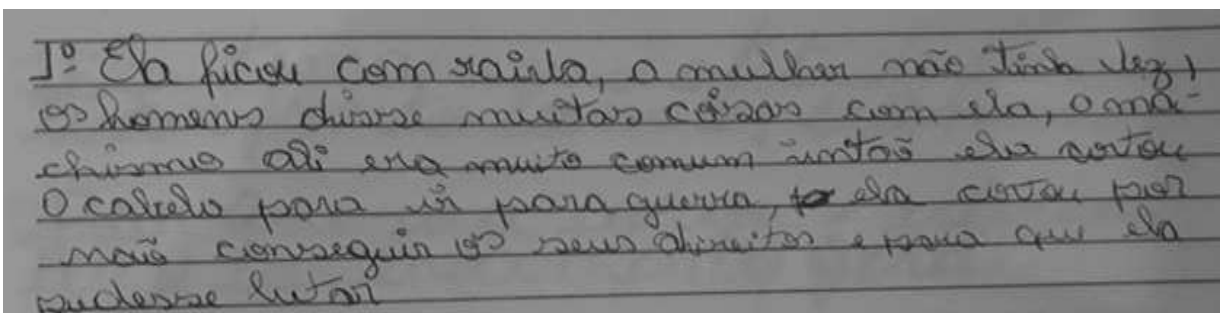 1º Ela ficou com raiva, a mulher não tinha vez,
os homens disse muitas coisas com ela, o ma-
chismo ali era muito comum imtão ela cortou
O cabelo para ir para guerra, ela cortou por
não conseguir os seus direitos e para que ela
pudesse lutar